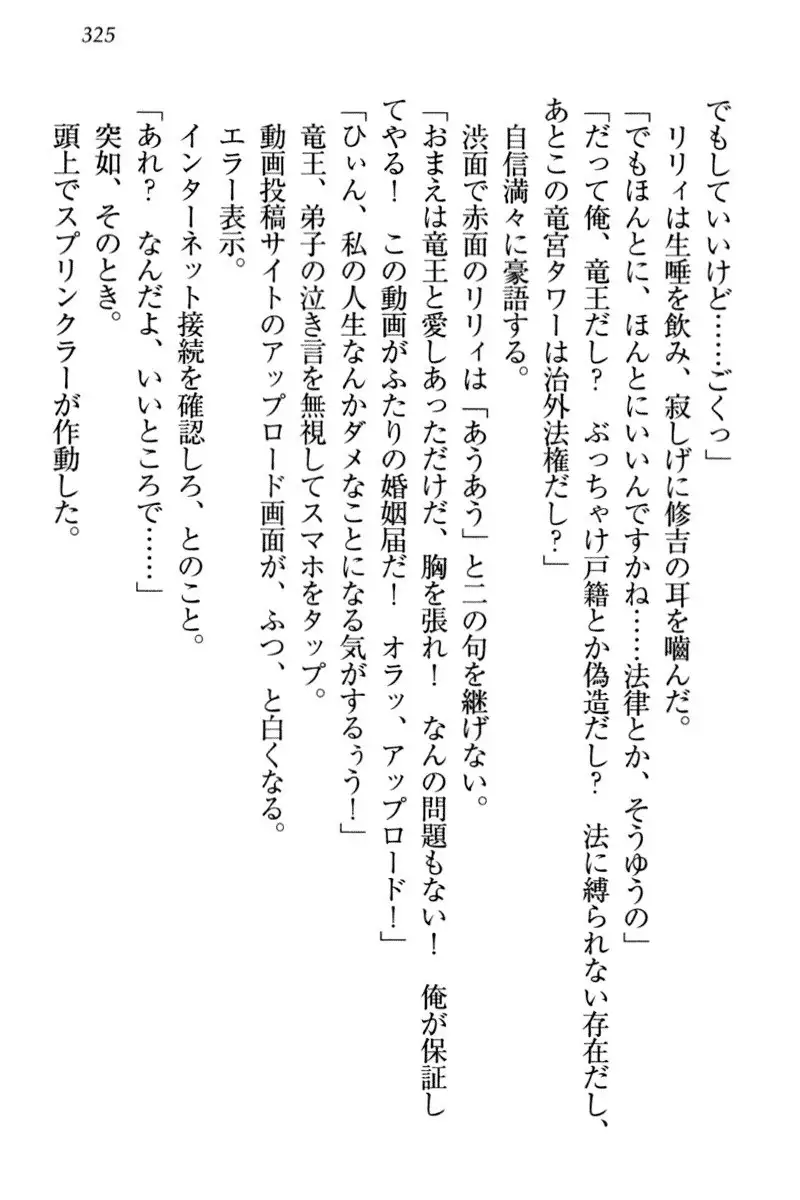 325
でもしていいけど……ごくっ」
　リリィは生唾を飲み、寂しげに修吉の耳を嚙んだ。
「でもほんとに、ほんとにいいんですかね……法律とか、そうゆうの」
「だって俺、竜王だし？　ぶっちゃけ戸籍とか偽造だし？　法に縛られない存在だし、
あとこの竜宮タワーは治外法権だし？」
　自信満々に豪語する。
　渋面で赤面のリリィは「あうあう」と二の句を継げない。
「おまえは竜王と愛しあっただけだ、胸を張れ！　なんの問題もない！　俺が保証し
てやる！　この動画がふたりの婚姻届だ！　オラッ、アップロード！」
「ひぃん、私の人生なんかダメなことになる気がするぅう！」
　竜王、弟子の泣き言を無視してスマホをタップ。
　動画投稿サイトのアップロード画面が、ふつ、と白くなる。
　エラー表示。
　インターネット接続を確認しろ、とのこと。
「あれ？　なんだよ、いいところで……」
　突如、そのとき。
　頭上でスプリンクラーが作動した。